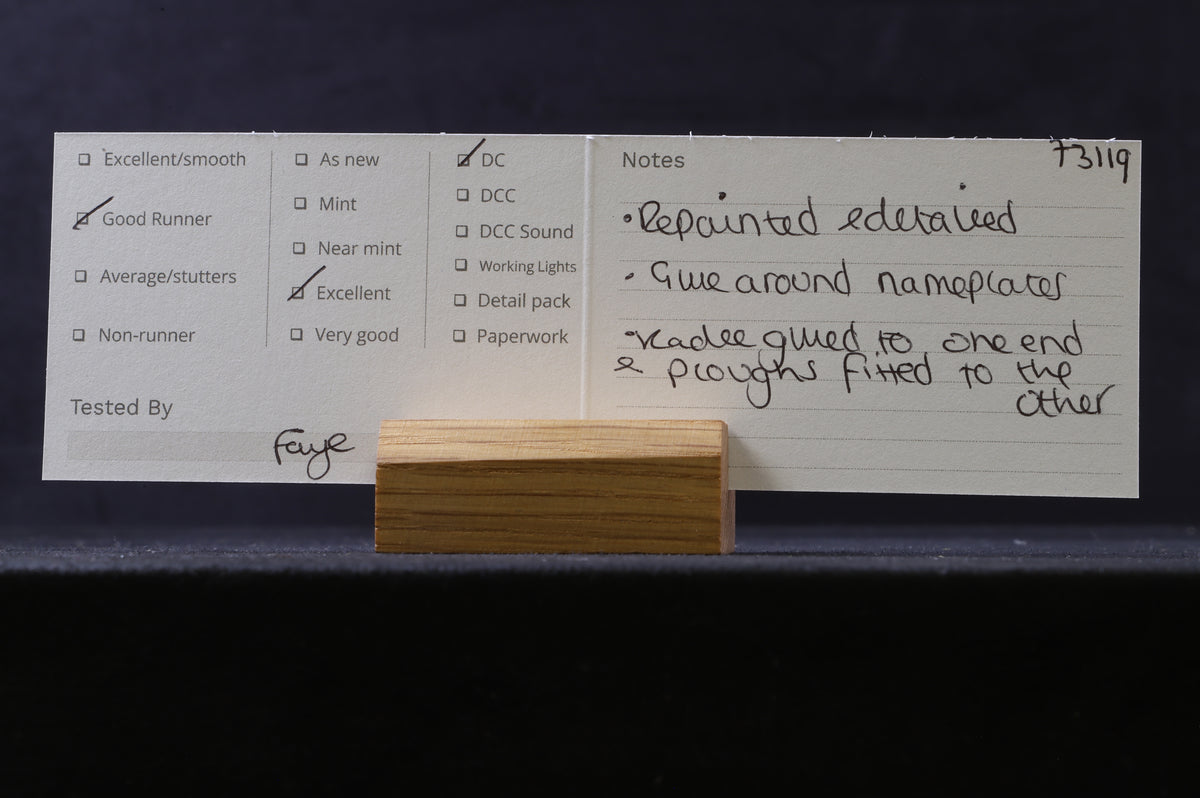 ☐ Excellent/smooth
☑ Good Runner
☐ Average/stutters
☐ Non-runner
Tested By
Faye
☐ As new
☐ Mint
☐ Near mint
☑ Excellent
☐ Very good
☑ DC
☐ DCC
☐ DCC Sound
☐ Working Lights
☐ Detail pack
☐ Paperwork
Notes
73119
• Repainted & detailed
• Glue around nameplates
• Kadee glued to one end
& ploughs fitted to the
other